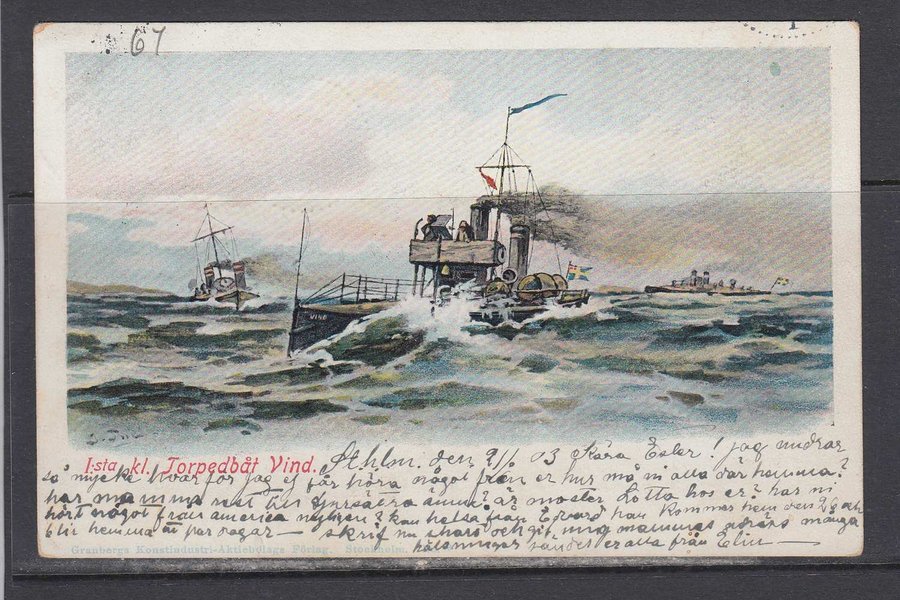 67
VIND
I:sta kl. Torpedbåt Vind. Sthlm. den 9/ 03 Kära Ester! jag undrar
så mycke hvarför jag ej får höra något från er hur må ni alla där hemma?
har mamma rest till ännu? är moster Lotta hos er? har ni
hört något från america nyligen? kan helsa från Edvard han kommer hem den 28 och
blir hemma ett par dagar — skrif nu snart och gif mig mammas adress många
Granbergs Konstindustri-Aktiebolags Förlag. Stockholm. hälsningar till er alla från Elin —